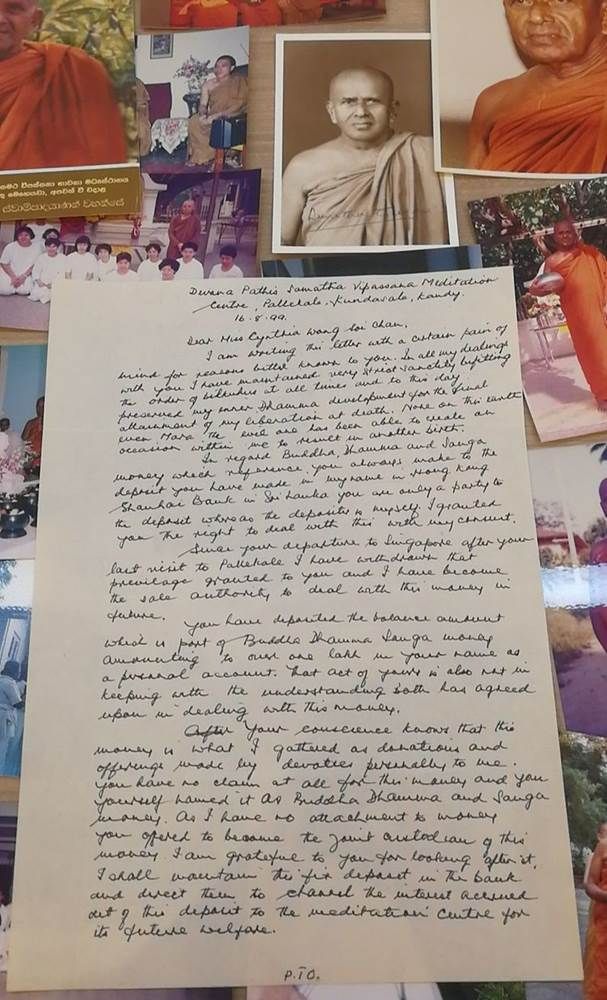 සමථ විපස්සනා භාවනා මධ්‍යස්ථානයේ
Dvana Pathis Samatha Vipassana Meditation
Centre, Pallekale, Kundasale, Kandy.
16.8.99.
Dear Miss Cynthia Wong Soi Chan,
I am writing this letter with a certain pain of
mind for reasons better known to you. In all my dealings
with you I have maintained very strict sanctity befitting
the order of bikkhus at all times and to this day
preserved my inner Dhamma development for the final
attainment of my liberation at death. None on this earth
even Mara the evil one has been able to create an
occasion within me to result in another birth.
In regard Buddha, Dhamma and Sanga
money which reference you always make to the
deposit you have made in my name in Hong Kong
Shanhai Bank in Sri Lanka you are only a party to
the deposit whereas the depositer is myself. I granted
you the right to deal with this with my consent.
Since your departure to Singapore after your
last visit to Pallekale I have withdrawn that
previlage granted to you and I have become
the sole authority to deal with this money in
future.
You have deposited the balance amount
which is part of Buddha Dhamma Sanga money
amounting to over one lakh in your name as
a personal account. That act of yours is also not in
keeping with the understanding both has agreed
upon in dealing with this money.
After your conscience knows that this
money is what I gathered as donations and
offerings made by devotees personally to me.
You have no claim at all for this money and you
yourself named it as Buddha Dhamma and Sanga
money. As I have no attachment to money
you offered to become the joint custodian of this
money. I am grateful to you for looking after it.
I shall maintain the fix deposit in the bank
and direct them to channel the interest accrued
out of this deposit to the meditation centre for
its future welfare.
P.T.O.